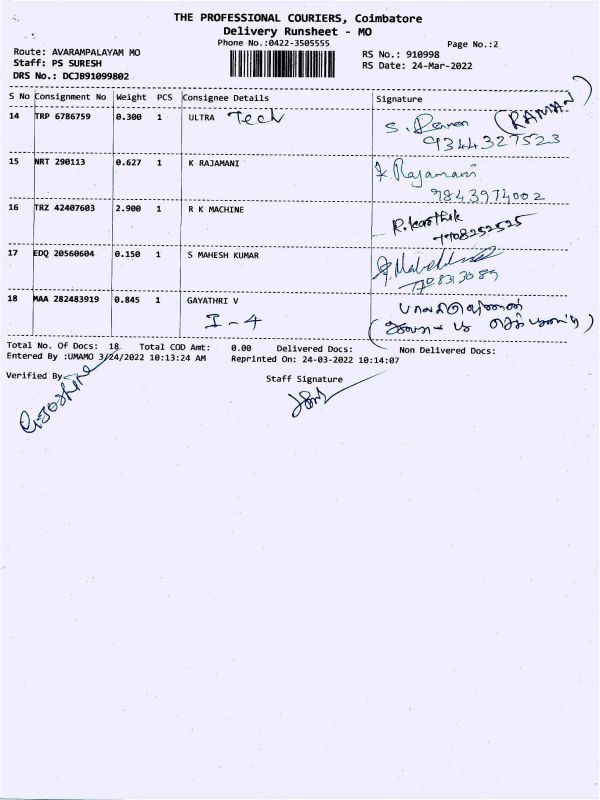 THE PROFESSIONAL COURIERS, Coimbatore
Delivery Runsheet - MO
Phone No.:0422-3505555
Page No.:2
Route: AVARAMPALAYAM MO
RS No.: 910998
Staff: PS SURESH
RS Date: 24-Mar-2022
DRS No.: DCJB91099802
S No Consignment No Weight PCS Consignee Details Signature
14 TRP 6786759 0.300 1 ULTRA Tech S. Raman (RAMAN)
9344327523
15 NRT 290113 0.627 1 K RAJAMANI K Rajamani
9843974002
16 TRZ 42407603 2.900 1 R K MACHINE R. karthik
7708252525
17 EDQ 20560604 0.150 1 S MAHESH KUMAR
18 MAA 282483919 0.845 1 GAYATHRI V
I - 4
Total No. Of Docs: 18 Total COD Amt: 0.00 Delivered Docs: Non Delivered Docs:
Entered By :UMAMO 3/24/2022 10:13:24 AM Reprinted On: 24-03-2022 10:14:07
Verified By
Staff Signature